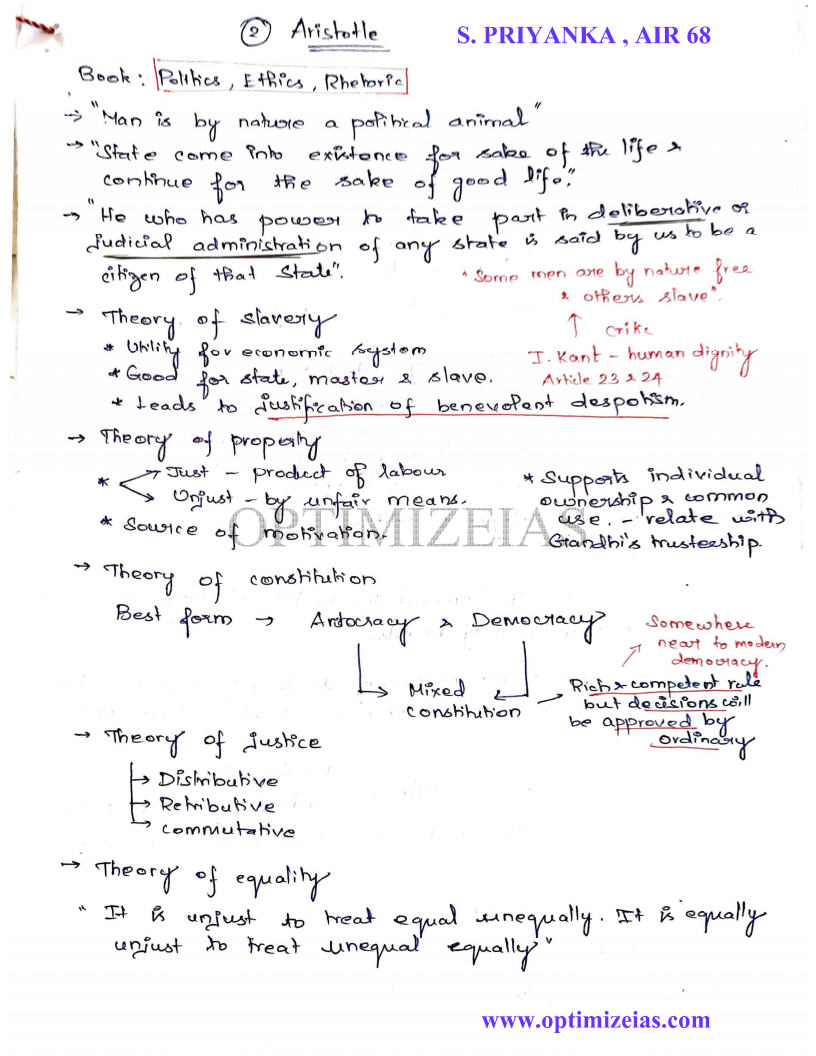 ② Aristotle
S. PRIYANKA , AIR 68
Book: Politics, Ethics, Rhetoric
→ "Man is by nature a political animal"
→ "State come into existence for sake of the life &
continue for the sake of good life."
→ "He who has power to take part in deliberative or
judicial administration of any state is said by us to be a
citizen of that state".
"Some men are by nature free
& others slave".
↑ crike
I. Kant - human dignity
Article 23 & 24
→ Theory of slavery
* Utility for economic system
* Good for state, master & slave.
* Leads to justification of benevolent despotism.
→ Theory of property
* → Just - product of labour
→ Unjust - by unfair means.
* Source of motivation.
* Supports individual
ownership & common
use. - relate with
Gandhi's trusteeship.
OPTIMIZEIAS
→ Theory of constitution
Best form → Aristocracy & Democracy
→ Mixed
constitution
→ Rich & competent rule
but decisions will
be approved by
ordinary
Somewhere
near to modern
democracy.
→ Theory of justice
→ Distributive
→ Retributive
→ Commutative
→ Theory of equality
" It is unjust to treat equal unequally. It is equally
unjust to treat unequal equally"
www.optimizeias.com